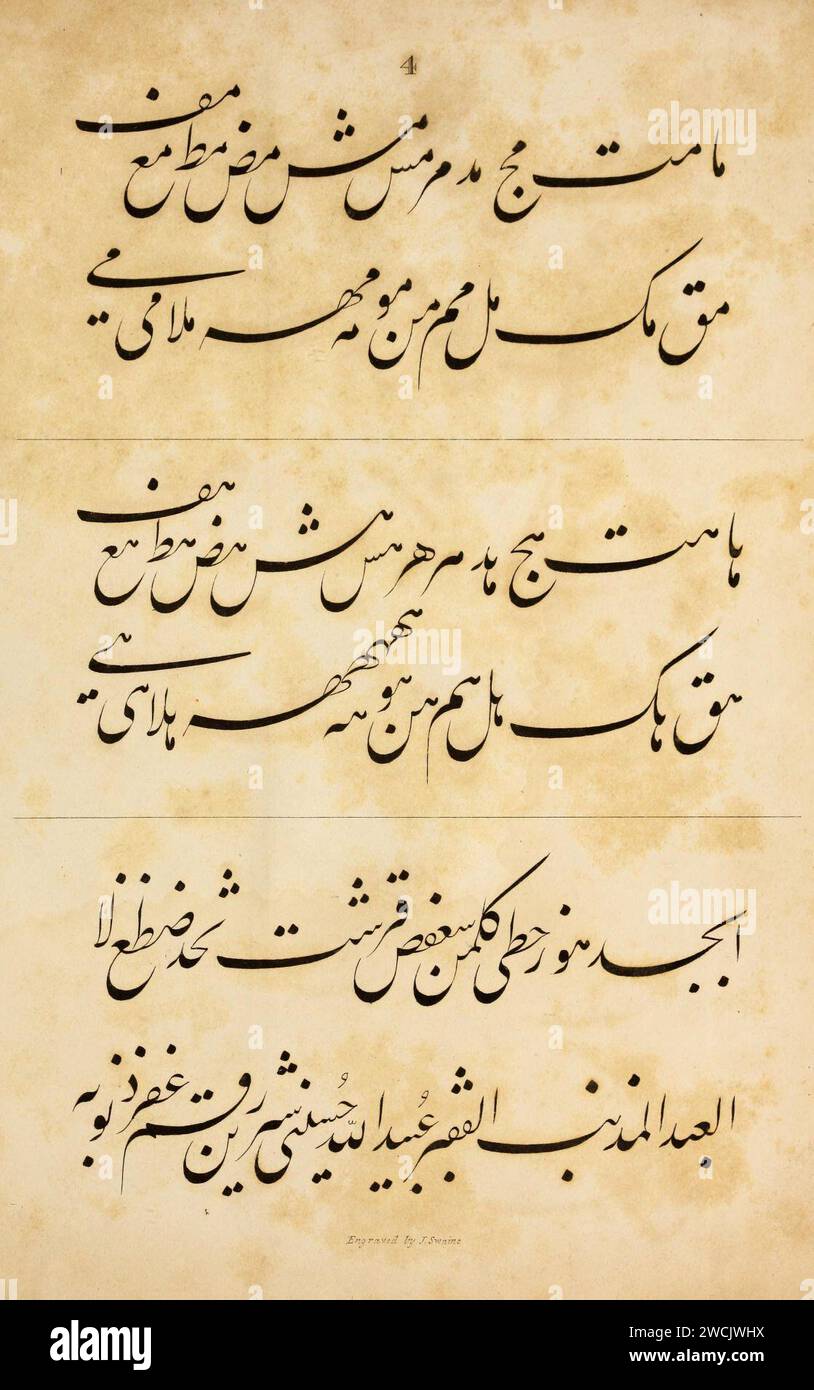 4
ما مت مج مد مر مس مش مض مط مع مف
مق مک مل مم من مو مه مهه ملا می مے
ها هت هج هد هر هر هس هش هض هط هع هف
هق هک هل هم هن هو هه ههههه هلا هی هے
ابجد هوز حطی کلمن سعفص قرشت ثخذ ضظغ لا
العبد المذنب الفقیر عُبید الله حُسینی شیرین رقم غفر ذنوبه
Engraved by J. Swaine
alamy
Image ID: 2WCJWHX
www.alamy.com